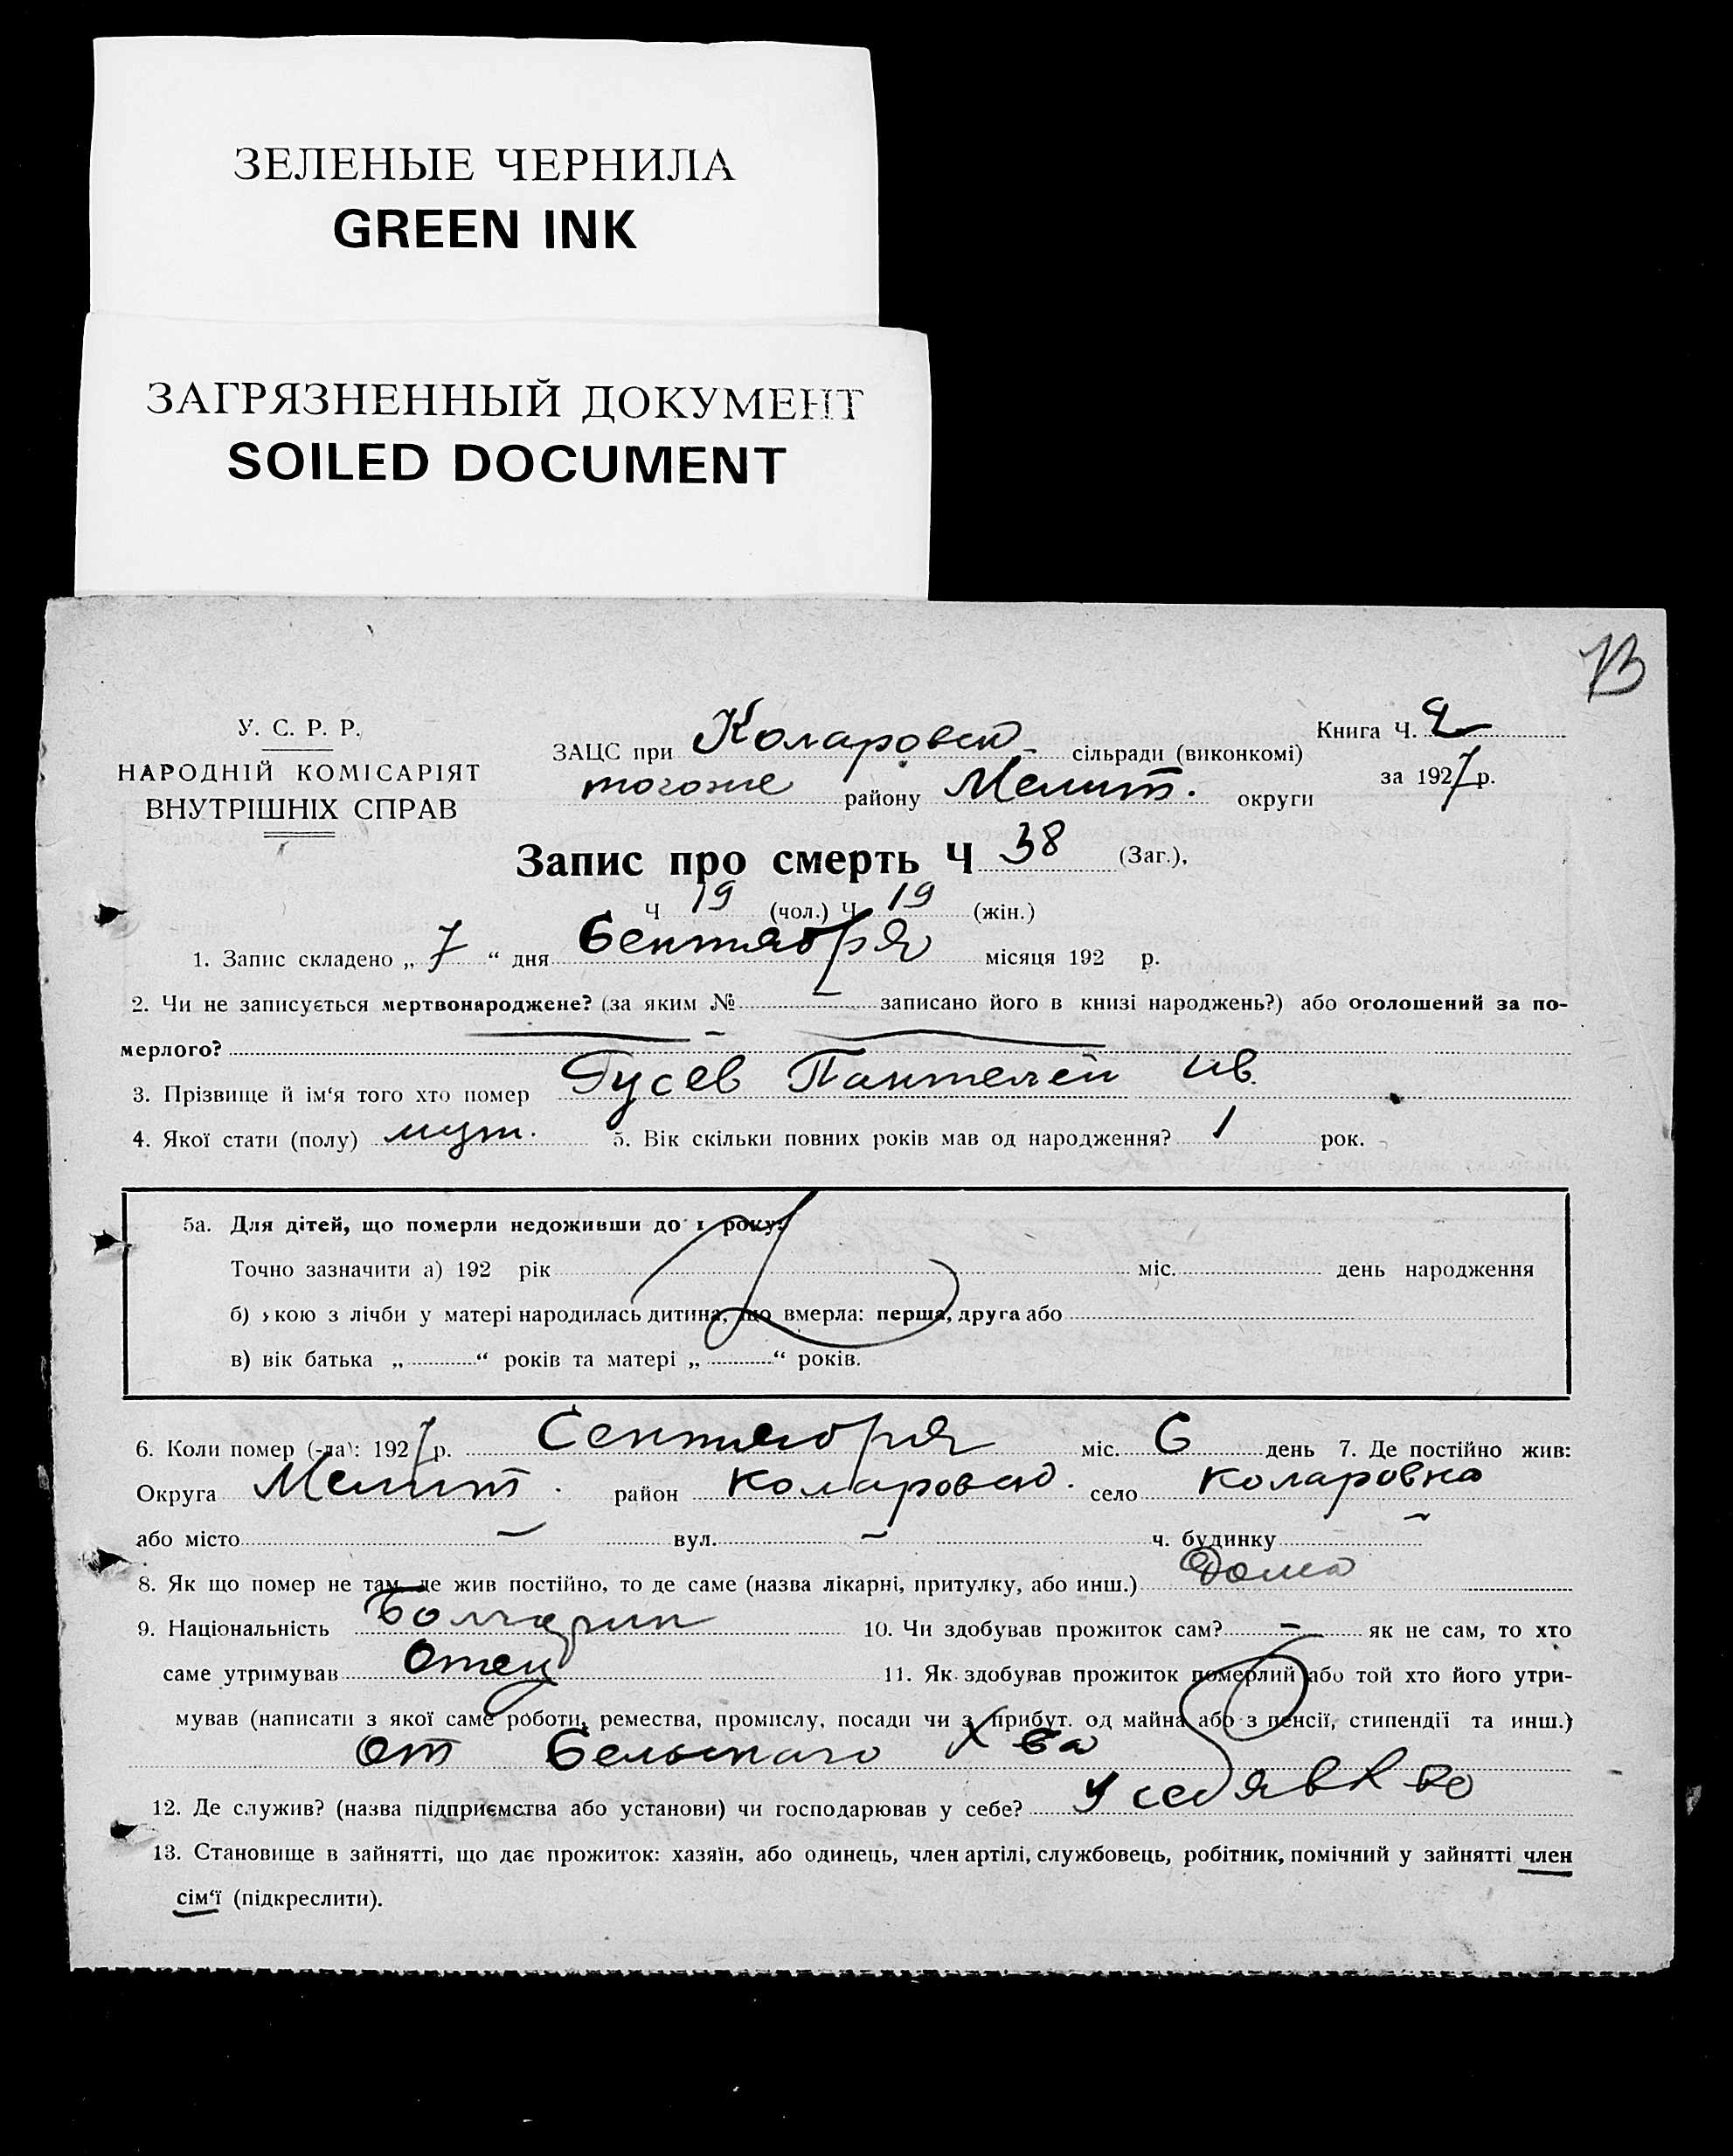 ЗЕЛЕНЫЕ ЧЕРНИЛА
GREEN INK
ЗАГРЯЗНЕННЫЙ ДОКУМЕНТ
SOILED DOCUMENT
У. С. Р. Р.
НАРОДНІЙ КОМІСАРІЯТ
ВНУТРІШНІХ СПРАВ
ЗАЦС при Коларовск- сільради (виконкомі)
тогоже району Мелит. округи
Книга Ч. 2
за 1927 р.
Запис про смерть Ч 38 (Заг.),
Ч 19 (чол.) Ч 19 (жін.)
1. Запис складено „ 7 “ дня Сентября місяця 192 р.
2. Чи не записується мертвонароджене? (за яким № — записано його в книзі народжень?) або оголошений за по-
мерлого?
3. Прізвище й ім‘я того хто помер Гусев Пантелей Ив.
4. Якої стати (полу) муж. 5. Вік скільки повних років мав од народження? 1 рок.
5а. Для дітей, що померли недоживши до 1 року:
Точно зазначити а) 192 рік міс. день народження
б) якою з лічби у матері народилась дитина, що вмерла: перша, друга або
в) вік батька „ “ років та матері „ “ років.
6. Коли помер (-ла): 1927 р. Сентября міс. 6 день 7. Де постійно жив:
Округа Мелит. район Коларовск. село Коларовка
або місто — вул. — ч. будинку —
8. Як що помер не там, де жив постійно, то де саме (назва лікарні, притулку, або инш.) Дома
9. Національність Болгарин 10. Чи здобував прожиток сам? — як не сам, то хто
саме утримував Отец 11. Як здобував прожиток померлий або той хто його утри-
мував (написати з якої саме роботи, ремества, промислу, посади чи з прибут. од майна або з пенсії, стипендії та инш.)
От Сельскаго Х Ва
12. Де служив? (назва підприємства або установи) чи господарював у себе? У себя в
13. Становище в зайнятті, що дає прожиток: хазяїн, або одинець, член артілі, службовець, робітник, помічний у зайнятті член
сім‘ї (підкреслити).